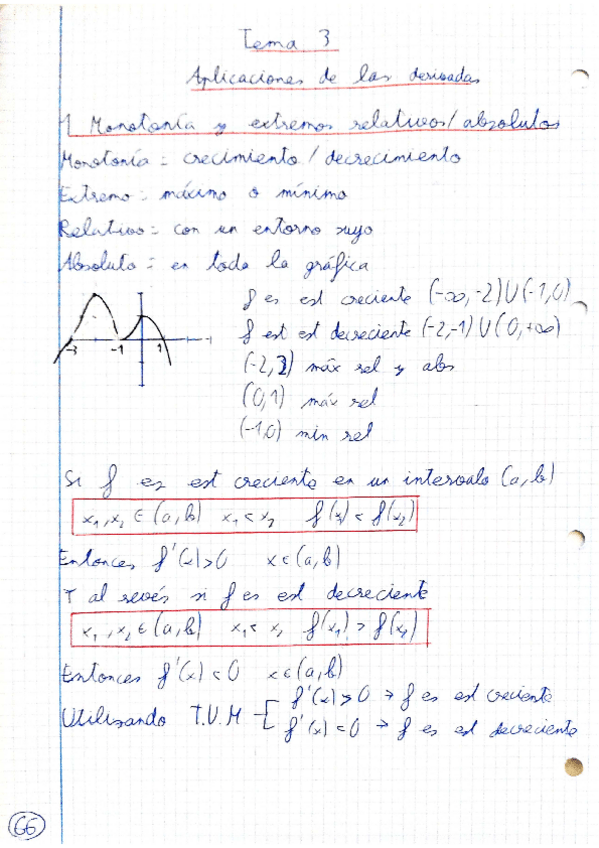 Tema 3
Aplicaciones de las derivadas
1 Monotonía y extremos relativos/absolutos
Monotonía = crecimiento/decrecimiento
Extremo = máximo o mínimo
Relativo = con un entorno suyo
Absoluto = en toda la gráfica
f es est creciente (-∞,-2)U(-1,0)
f est est decreciente (-2,-1)U(0,+∞)
(-2,2) máx rel y abs
(0,1) máx rel
(-1,0) min rel
-3 -1 1
Si f es est creciente en un intervalo (a,b)
x₁,x₂ ∈ (a,b) x₁<x₂ f(x₁)<f(x₂)
Entonces f'(x)>0 x∈(a,b)
Y al revés si f es est decreciente
x₁,x₂ ∈ (a,b) x₁<x₂ f(x₁)>f(x₂)
Entonces f'(x)<0 x∈(a,b)
Utilisando T.V.M f'(x)>0 → f es est creciente
f'(x)<0 → f es est decreciente
66